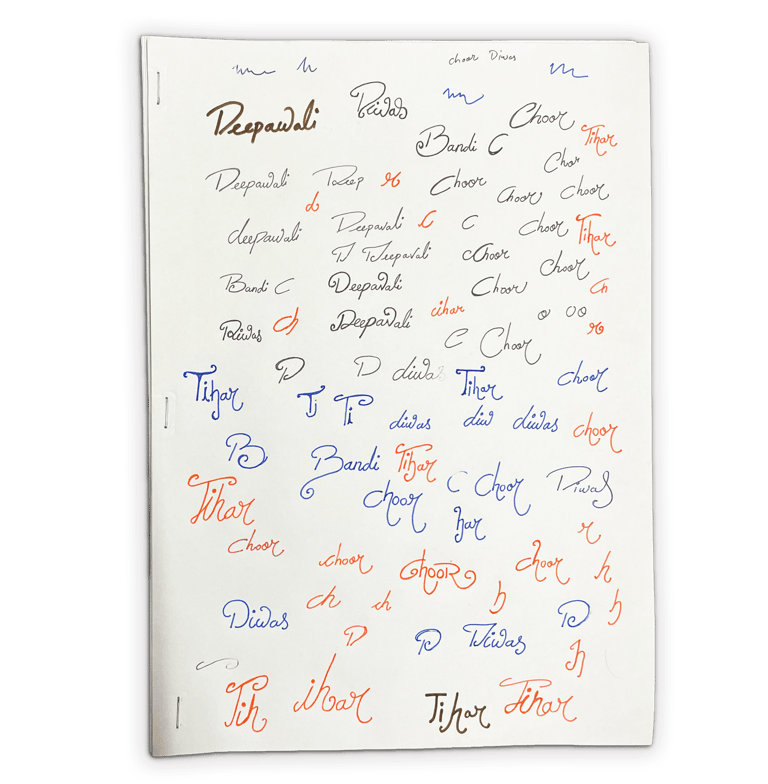 choor Diwas
Deepawali Diwas Choor
Bandi C Tihar
Chor
Deepawali Deep r Choor Choor Choor
d
deepawali Deepavali C C Choor Tihar
D Deepavali cChoor Choor
Bandi C Deepavali Choor Ch
Diwas ch Deepavali cihar o oo
C Choor r
Tihar D D diwas Tihar choor
Ti Ti diwas diw diwas choor
B Bandi Tihar
Tihar choor C Choor Diwas
har r
choor choor ChooR choor h
ch ch h h
Diwas D D Diwas D
h
Tih ihar Tihar Tihar